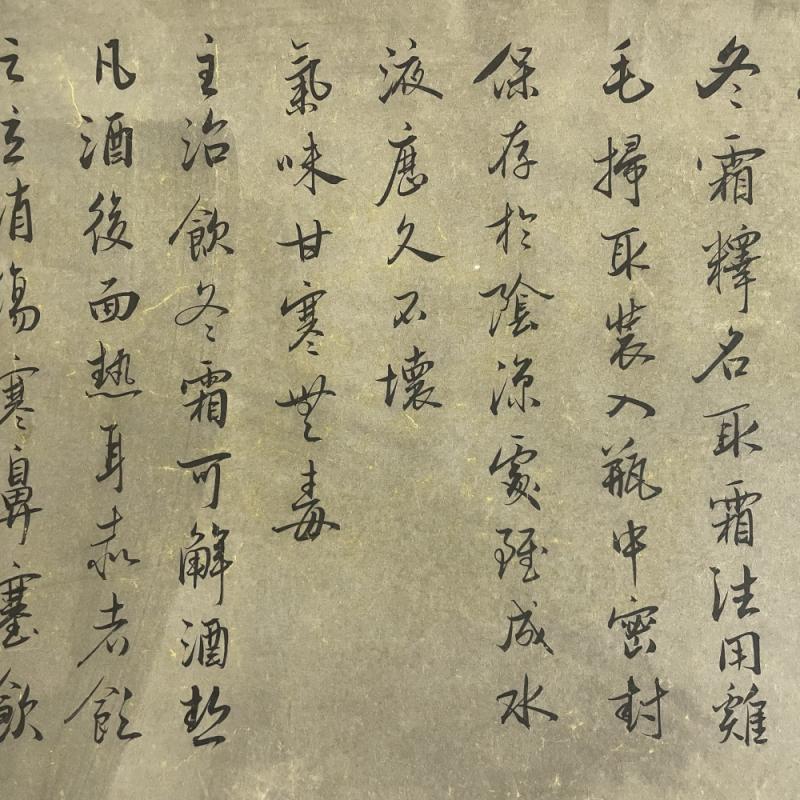 冬霜釋名取霜法用雞
毛掃取裝入瓶中密封
保存於陰涼處雖成水
液歷久不壞
氣味甘寒無毒
主治飲冬霜可解酒熱
凡酒後面熱耳赤者飲
之立消傷寒鼻塞飲